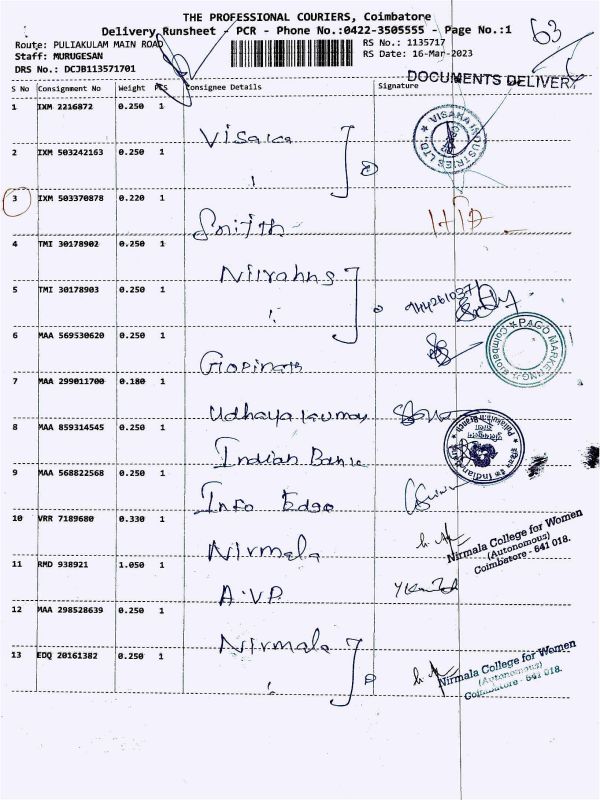 THE PROFESSIONAL COURIERS, Coimbatore
Delivery Runsheet - PCR - Phone No.:0422-3505555 - Page No.:1
63
Route: PULIAKULAM MAIN ROAD
RS No.: 1135717
Staff: MURUGESAN
RS Date: 16-Mar-2023
DRS No.: DCJB113571701
DOCUMENTS DELIVERY
S No Consignment No Weight PCS Consignee Details Signature
1 IXM 2216872 0.250 1
Visaka
VISAKA INDUSTRIES LTD.
2 IXM 503242163 0.250 1
3 IXM 503370878 0.220 1
Smijth
4 TMI 30178902 0.250 1
5 TMI 30178903 0.250 1
6 MAA 569530620 0.250 1
Gopinath
PAGO MARKERNG
Coimbatore
7 MAA 299011700 0.180 1
Udhaya kumar
8 MAA 859314545 0.250 1
Indian Bank
9 MAA 568822568 0.250 1
Info Edge
10 VRR 7189680 0.330 1
Nirmala
Nirmala College for Women
(Autonomous)
Coimbatore - 641 018.
11 RMD 938921 1.050 1
A.V.P
12 MAA 298528639 0.250 1
Nirmala
13 EDQ 20161382 0.250 1
Nirmala College for Women
(Autonomous)
Coimbatore - 641 018.